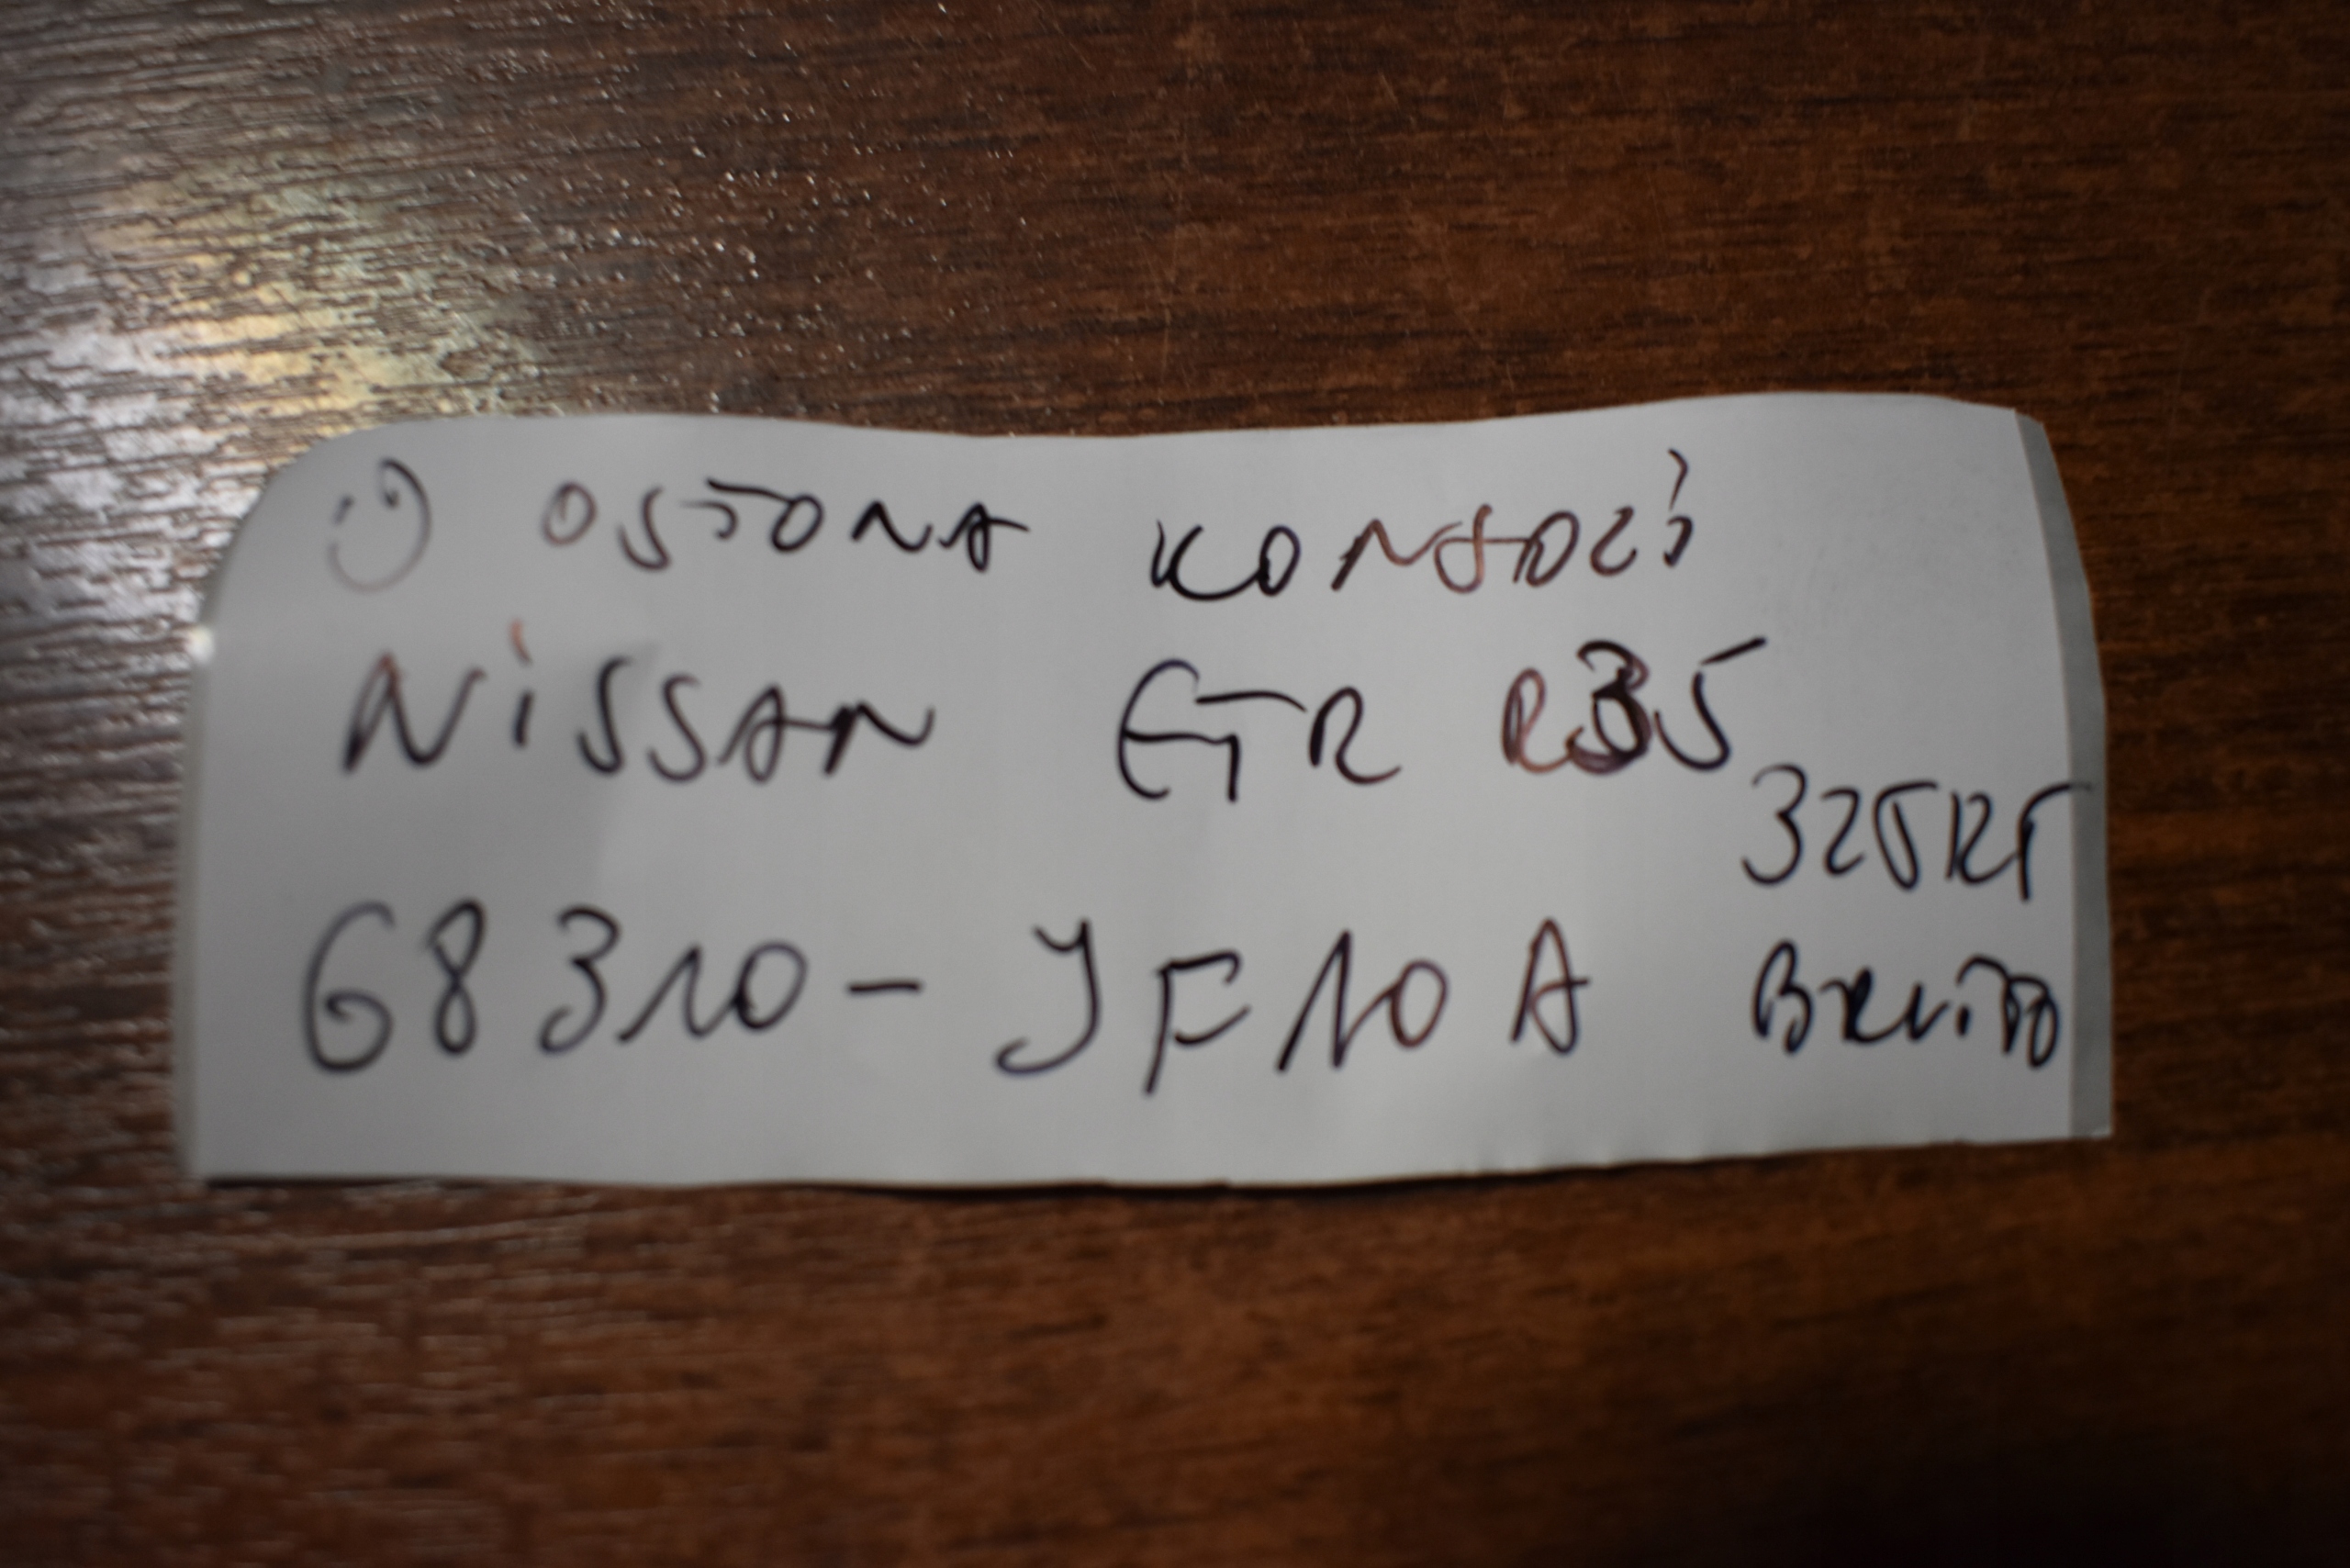 OSŁONA KONSOLI
NISSAN GTR R35
325KT
68310-JF10A BRUTTO